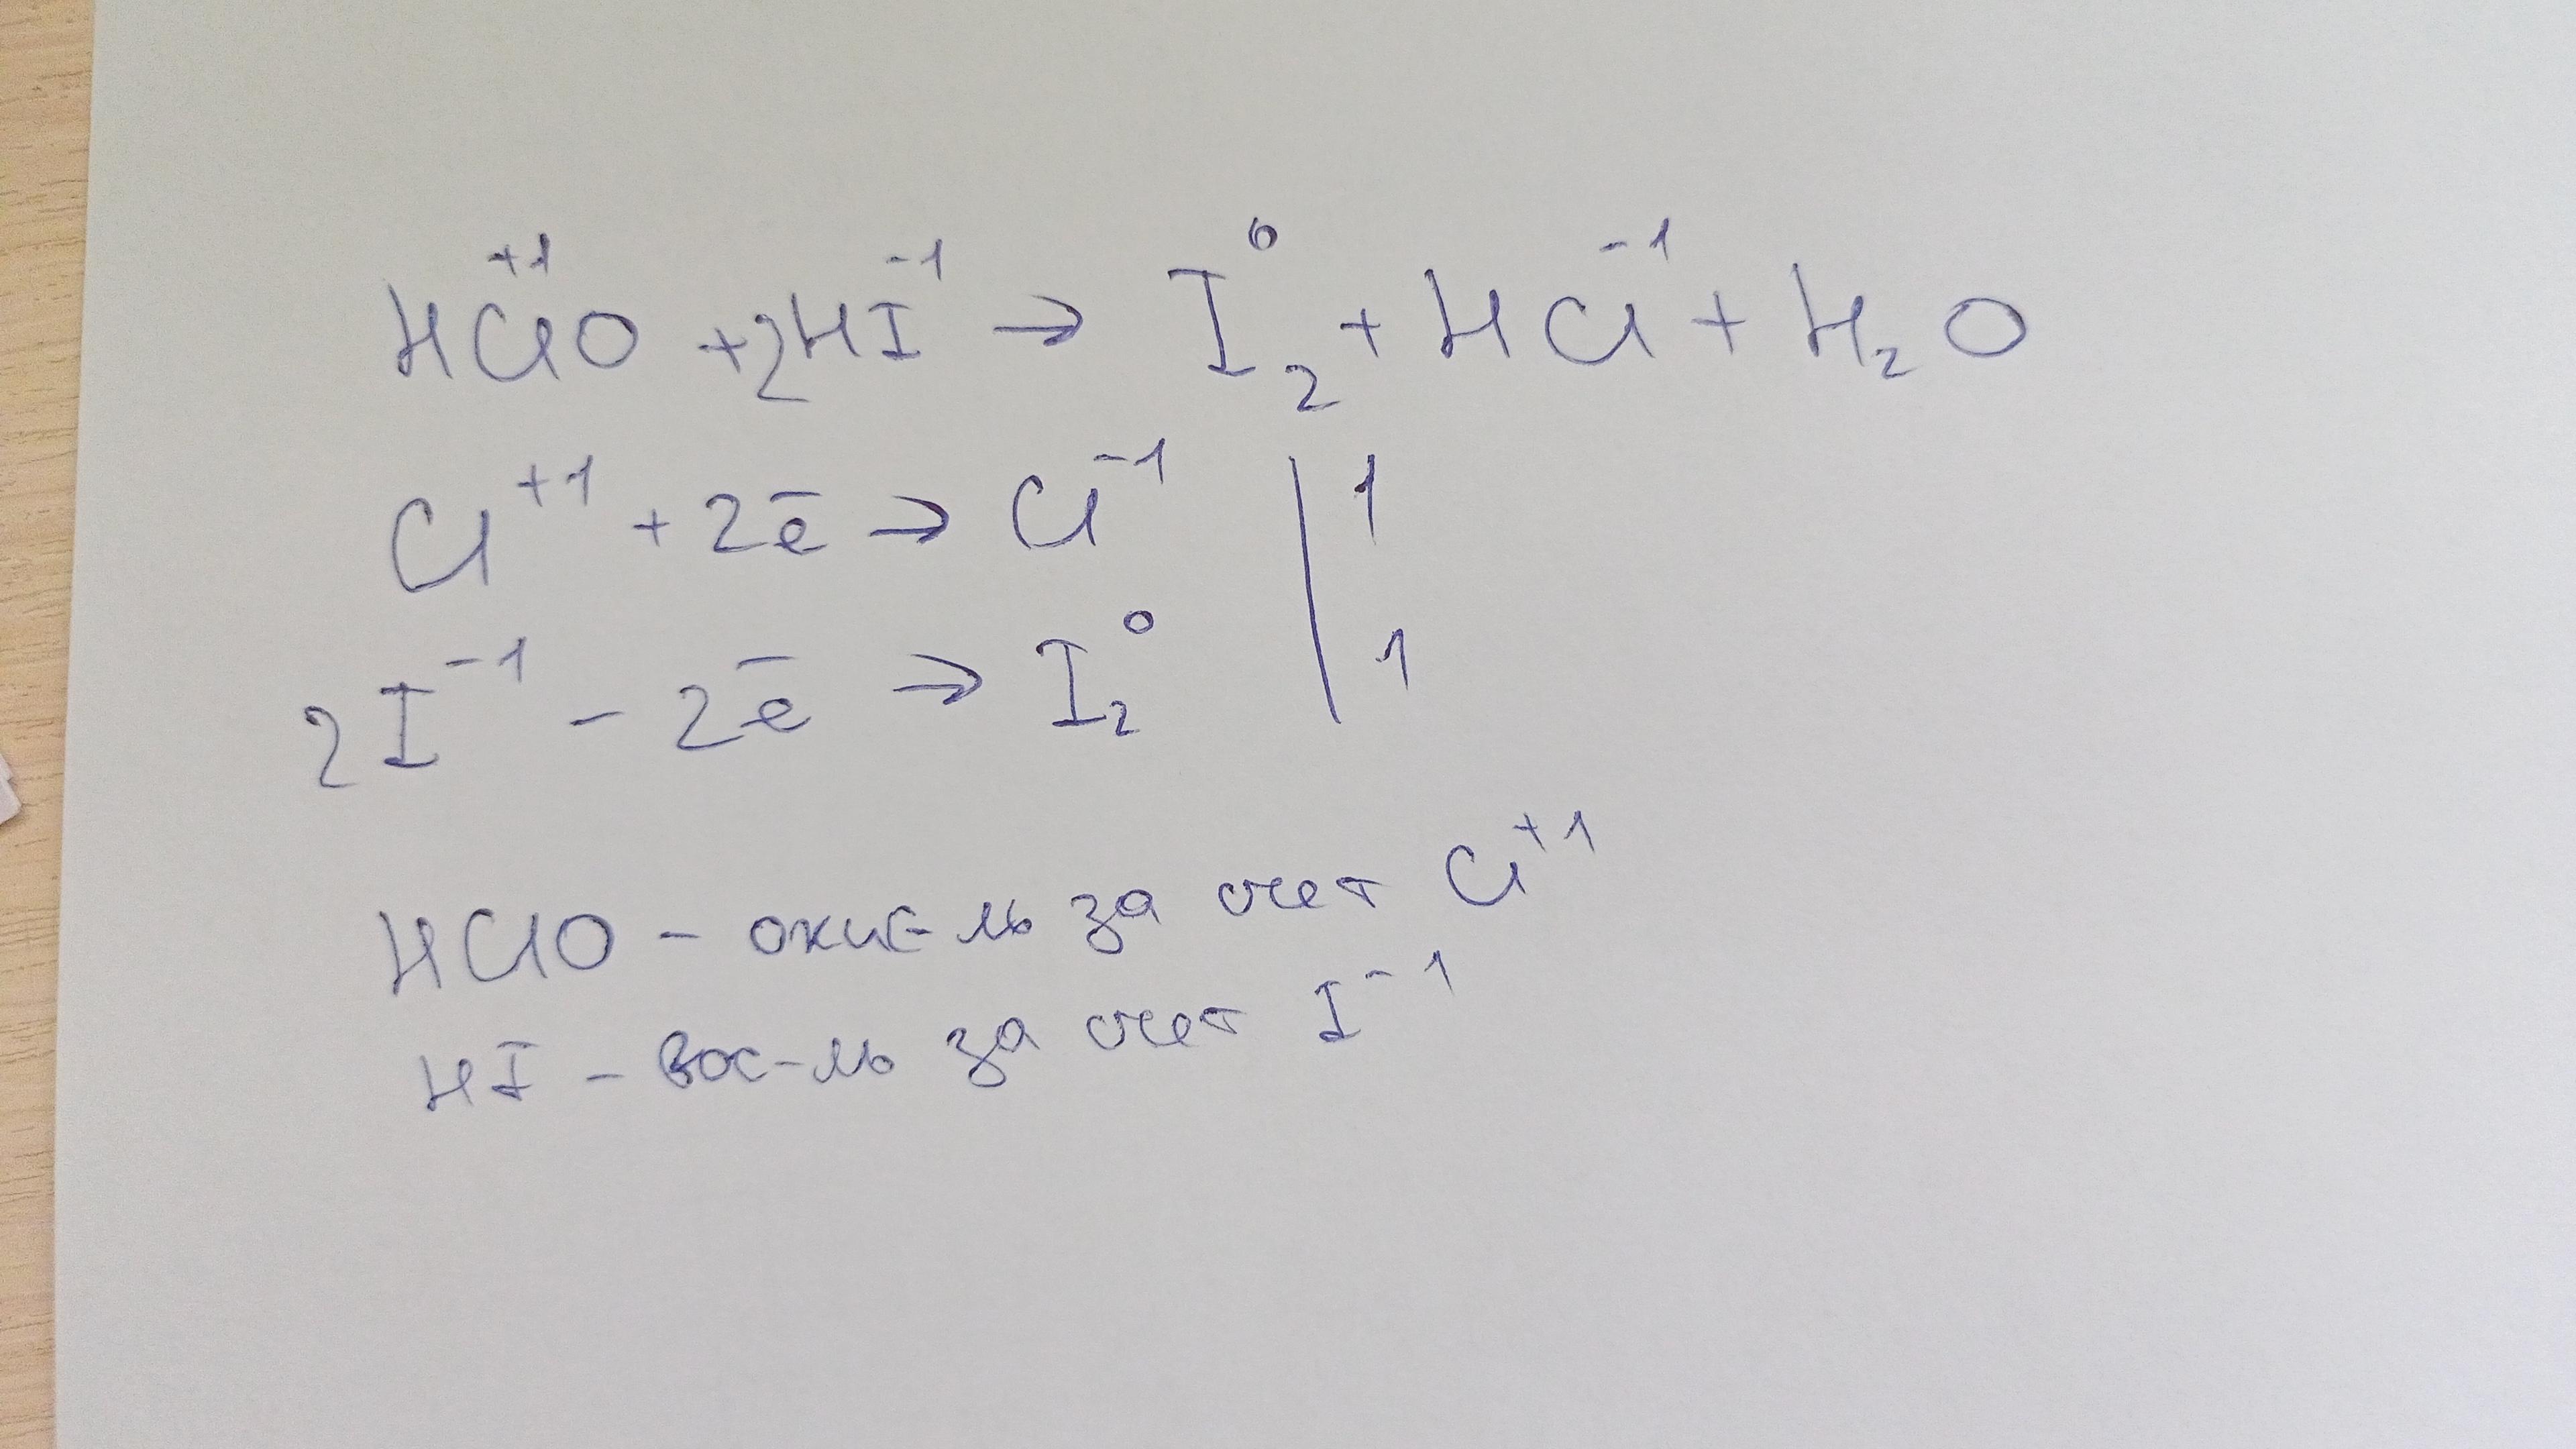 HCl⁺¹O + 2HI⁻¹ → I₂⁰ + HCl⁻¹ + H₂O
Cl⁺¹ + 2ē → Cl⁻¹ | 1
2I⁻¹ - 2ē → I₂⁰ | 1
HClO - окис-ль за счет Cl⁺¹
HI - вос-ль за счет I⁻¹